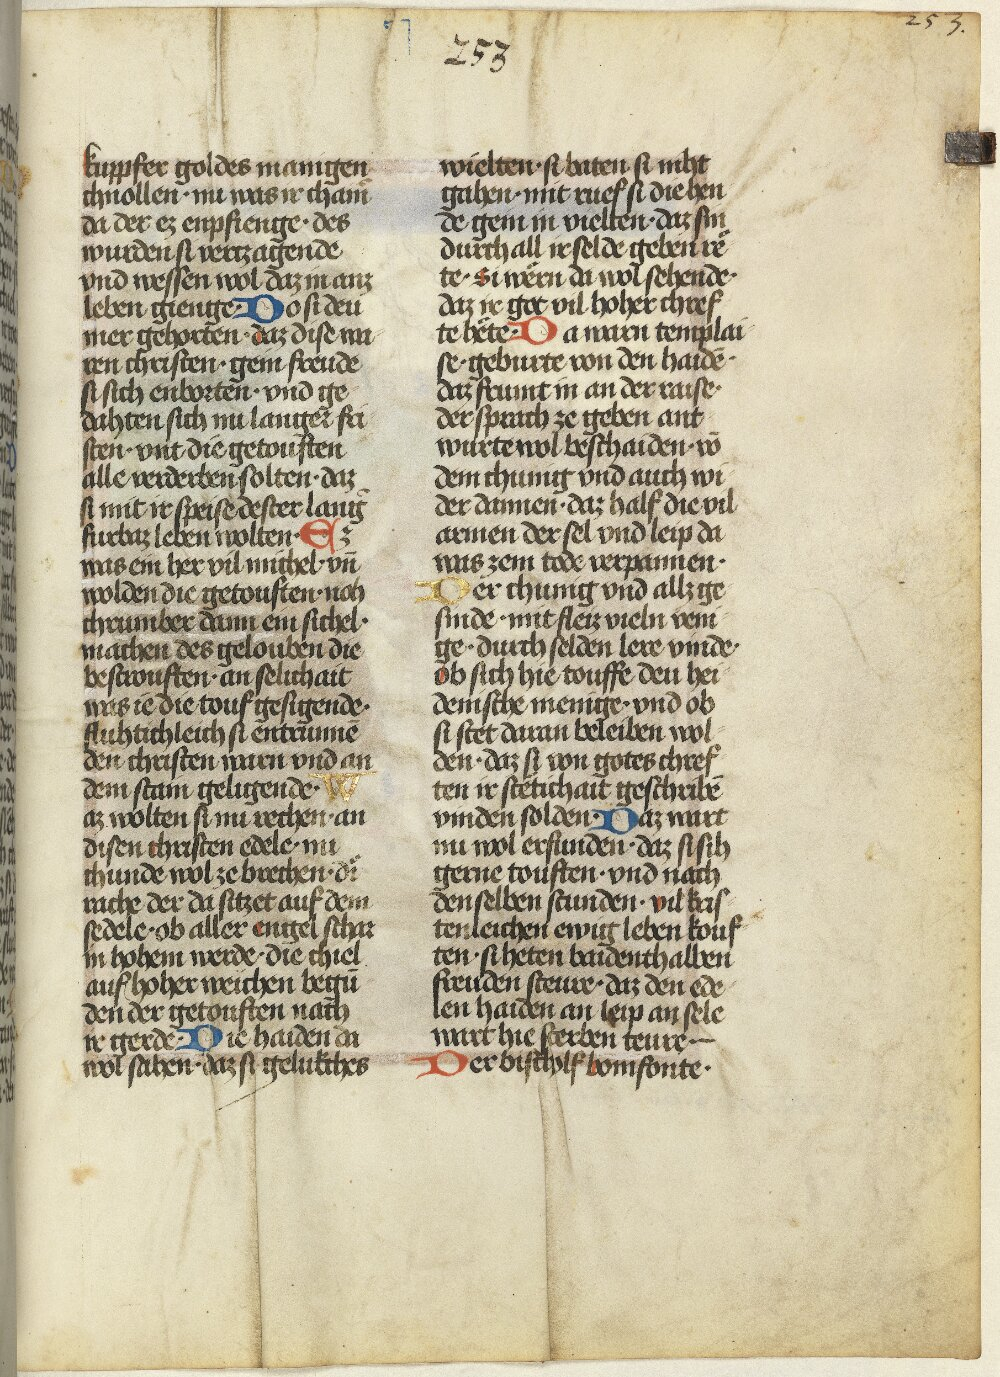 253.
253
kuppfer goldes manigen
chnollen · nu was ir cham̄
da der ez enpfienge · des
wurden si vertzagende
vnd wessen wol daz in anz
leben gienge · Do si deu
mer gehorten · daz dise wa
ren christen · gem freude
si sich enborten · vnd ge
dahten sich nu langer̄ fri
sten · vnt die getouften
alle verderben solten · daz
si mit ir speise dester lang̾
furbaz leben wolten · Ez
was ein her vil michel · vn̄
wolden die getouften · noh
chrumber dann ein sichel ·
machen des gelouben die
bestrouften · an selichait
was ie die touf gesigende ·
fluhtichleich si entrunnē
den christen warn vnd an
dem stam geligende · W
az wolten si nu rechen · an
disen christen edele · nu
chunde wol ze brechen · di̾
rache der da sitzet auf dem
sedele · ob aller engel schar
in hohem werde · die chiel
auf hoher weichen begū
den der getouften nach
ir gerde · Die haiden da
wol sahen · daz si gelukches
wielten · si baten si niht
gahen · mit ruef si die hen
de gem in vielten · daz sin
durch all ir selde geben re̾
te · si wern da wol sehende ·
daz ir got vil hoher chref
te hete · Da warn templai
se · geburte von den haidē ·
daz frumt in an der raise ·
der sprach ze geben ant
wurte wol beschaiden · vō
dem chunig vnd auch wi
der dannen · daz half die vil
armen der sel vnd leip da
was zem tode verpannen ·
Der chunig vnd allz ge
sinde · mit fleiz vieln veni
ge · durch selden lere vinde ·
ob sich hie touffe deu hei
denische menige · vnd ob
si stet daran beleiben wol
den · daz si von gotes chref
ten ir stetichait geschribē
vinden solden · Daz wart
nu wol erfunden · daz si sih
gerne touften · vnd nach
den selben stunden · vil kris
tenleichen ewig leben kouf
ten · si heten baidenthalben
freuden steure · daz den ede
len haiden an leip an sele
wart hie sterben teure
Der bischolf bonifonte ·